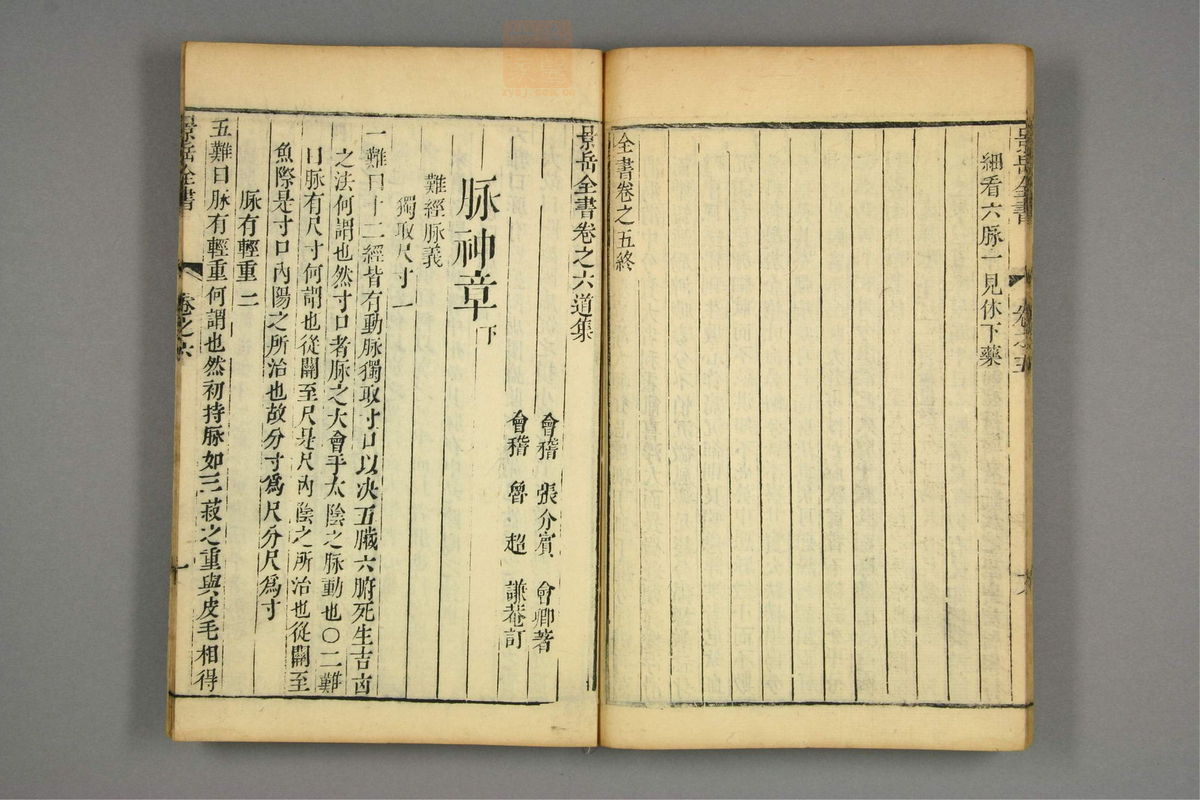 景岳全書 卷之五
細看六脉一見休下藥
全書卷之五終
景岳全書卷之六道集
會稽 張介賓 會卿著
會稽 魯超 謙菴訂
脉神章下
難經脉義
獨取尺寸一
一難曰十二經皆有動脉獨取寸口以决五臟六腑死生吉凶
之法何謂也然寸口者脉之大會手太陰之脉動也〇二難
曰脉有尺寸何謂也從關至尺是尺內陰之所治也從關至
魚際是寸口內陽之所治也故分寸爲尺分尺爲寸
脉有輕重二
五難曰脉有輕重何謂也然初持脉如三菽之重與皮毛相得
景岳全書 卷之六 一